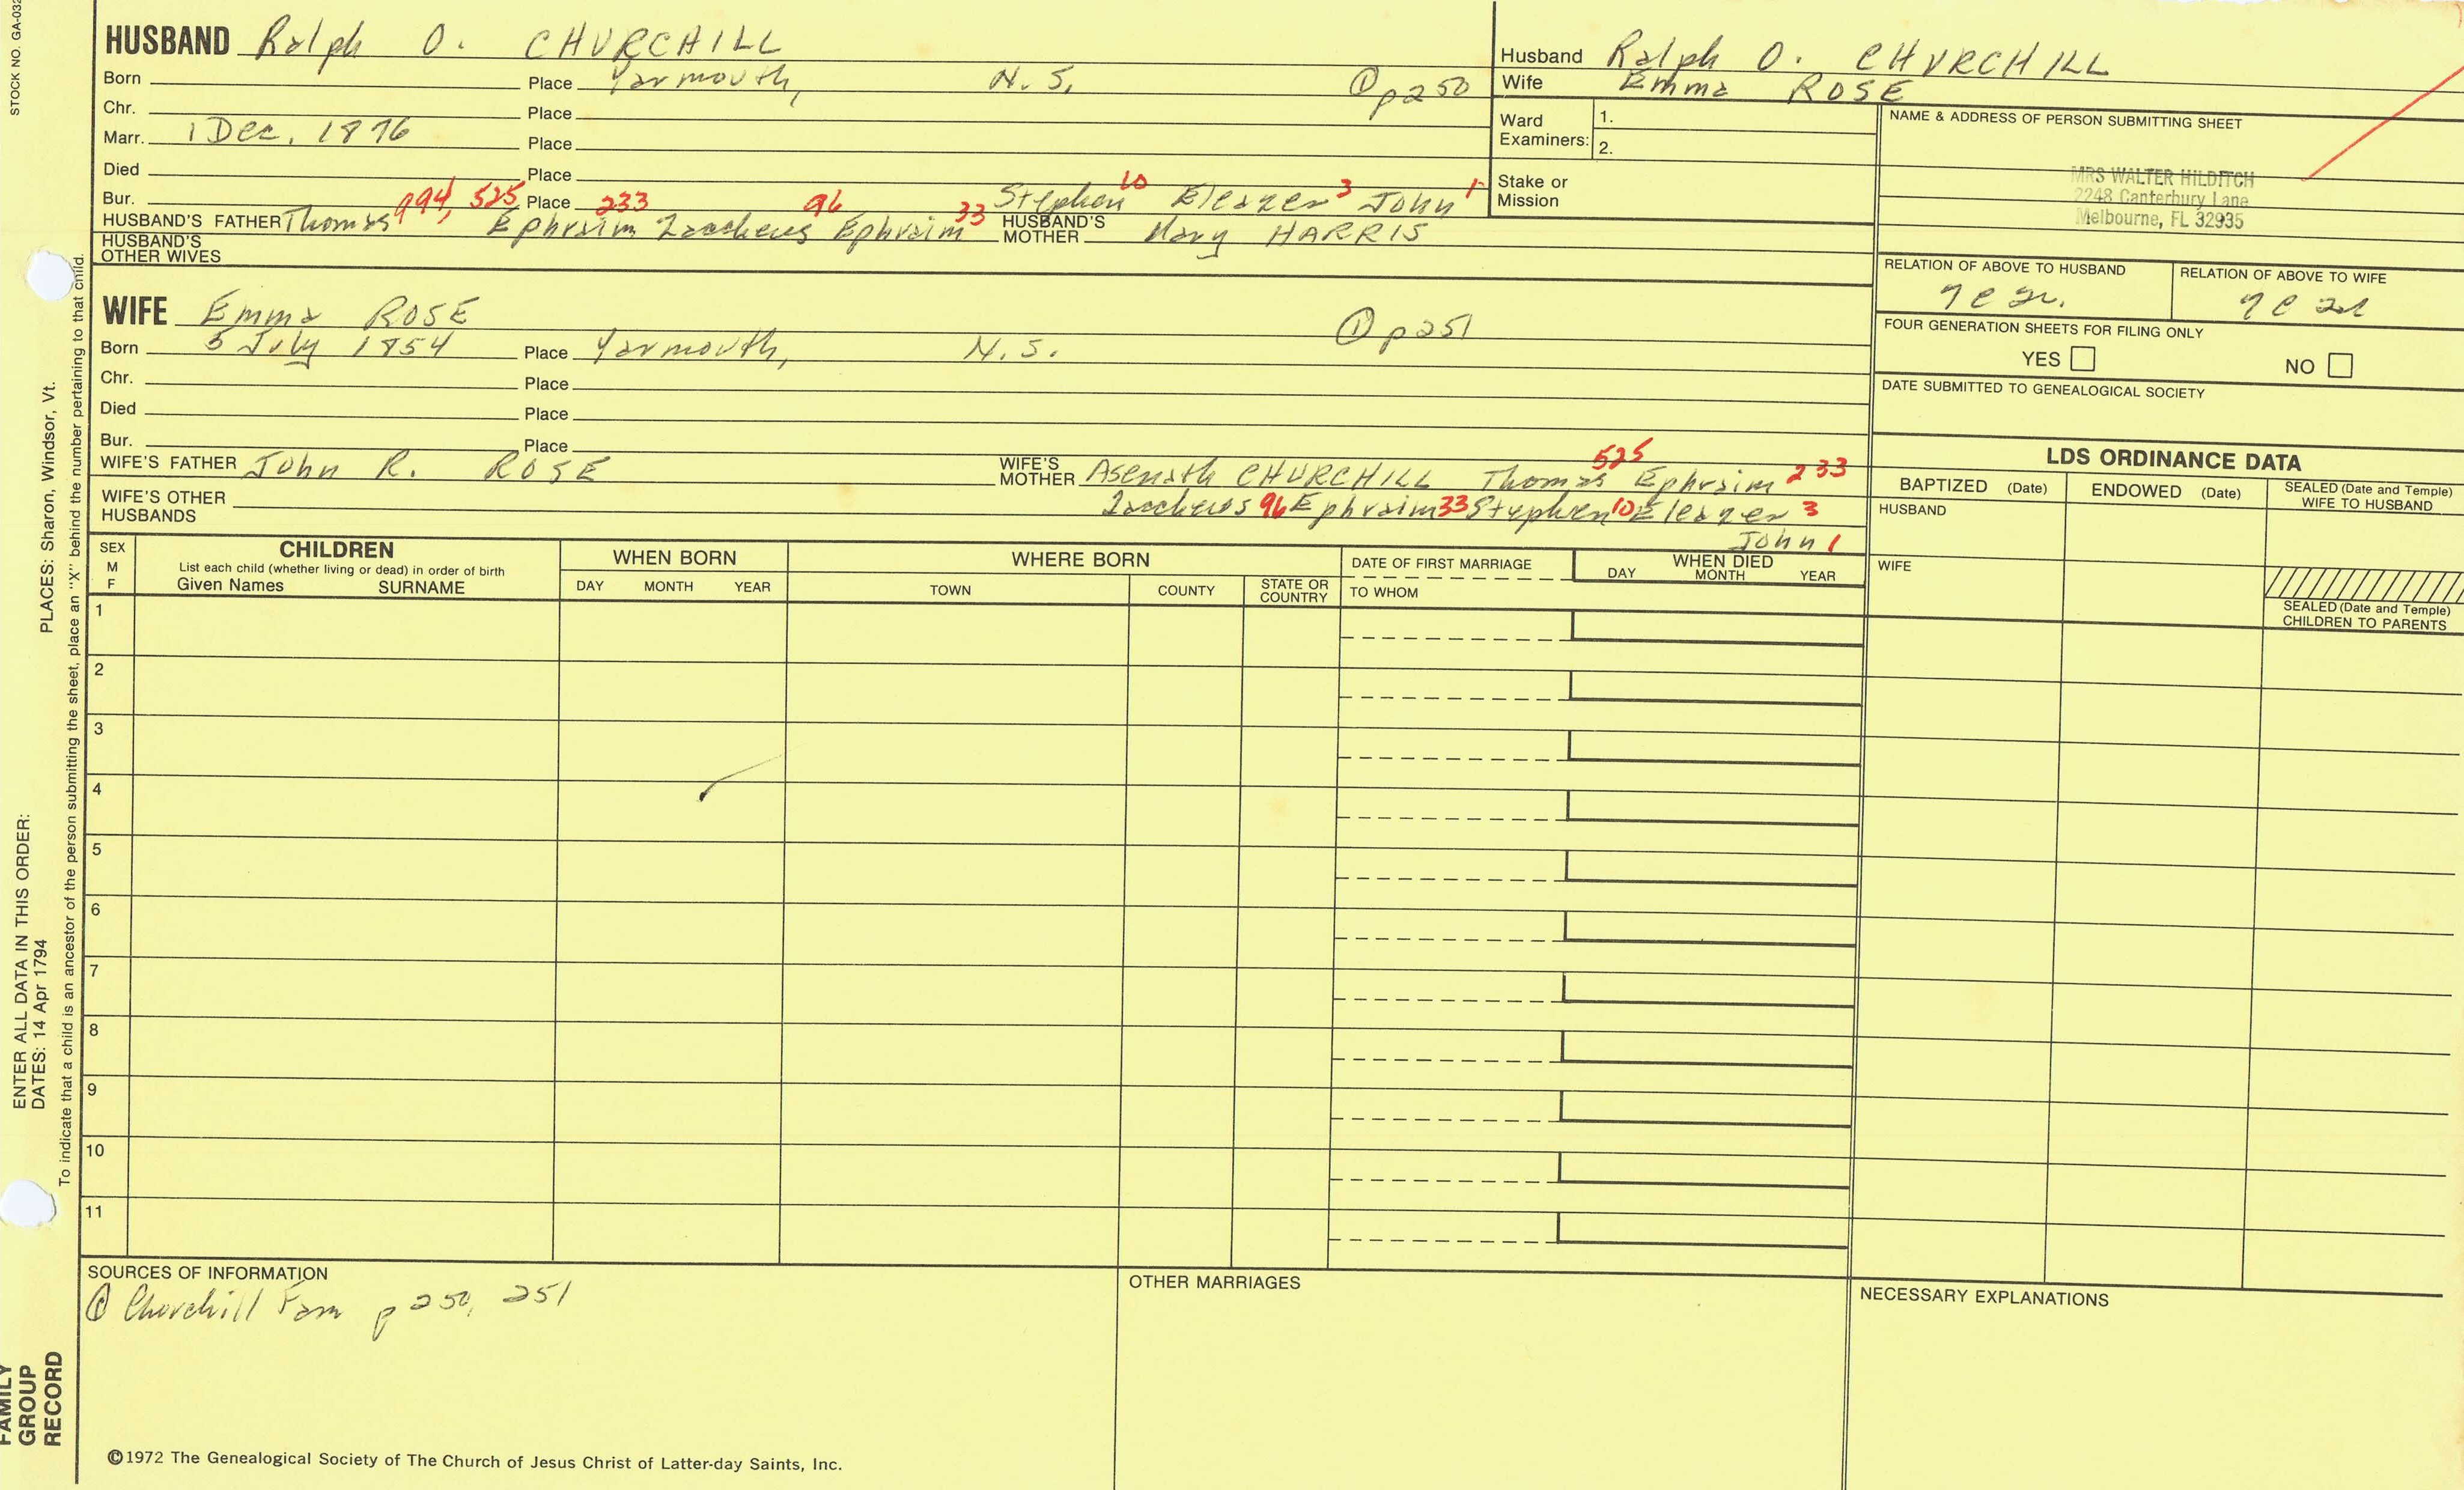 STOCK NO. GA-032
HUSBAND Ralph O. CHURCHILL
Born Place Yarmouth, N. S. ① p250
Chr. Place
Marr. 1 Dec. 1876 Place
Died Place
Bur. Place
994, 525 233 96 33 10 3 1
HUSBAND'S FATHER Thomas Ephraim Zaccheus Ephraim Stephen Eleazer John
HUSBAND'S MOTHER Mary HARRIS
HUSBAND'S OTHER WIVES
Husband Ralph O. CHURCHILL
Wife Emma ROSE
Ward Examiners: 1.
2.
Stake or Mission
NAME & ADDRESS OF PERSON SUBMITTING SHEET
MRS WALTER HILDITCH
2248 Canterbury Lane
Melbourne, FL 32935
RELATION OF ABOVE TO HUSBAND
RELATION OF ABOVE TO WIFE
FOUR GENERATION SHEETS FOR FILING ONLY
YES NO
DATE SUBMITTED TO GENEALOGICAL SOCIETY
WIFE Emma ROSE ① p251
Born 5 July 1854 Place Yarmouth, N. S.
Chr. Place
Died Place
Bur. Place
WIFE'S FATHER John R. ROSE
WIFE'S MOTHER Asenath CHURCHILL Thomas 525 Ephraim 233
Zaccheus 96 Ephraim 33 Stephen 10 Eleazer 3
John 1
WIFE'S OTHER HUSBANDS
LDS ORDINANCE DATA
BAPTIZED (Date) ENDOWED (Date) SEALED (Date and Temple) WIFE TO HUSBAND
HUSBAND
WIFE
SEALED (Date and Temple) CHILDREN TO PARENTS
SEX M F
CHILDREN
List each child (whether living or dead) in order of birth
Given Names SURNAME
WHEN BORN
DAY MONTH YEAR
WHERE BORN
TOWN COUNTY STATE OR COUNTRY
DATE OF FIRST MARRIAGE
TO WHOM
WHEN DIED
DAY MONTH YEAR
1
2
3
4
5
6
7
8
9
10
11
SOURCES OF INFORMATION
① Churchill Fam p 250, 251
OTHER MARRIAGES
NECESSARY EXPLANATIONS
©1972 The Genealogical Society of The Church of Jesus Christ of Latter-day Saints, Inc.
FAMILY GROUP RECORD
ENTER ALL DATA IN THIS ORDER:
DATES: 14 Apr 1794
PLACES: Sharon, Windsor, Vt.
To indicate that a child is an ancestor of the person submitting the sheet, place an "X" behind the number pertaining to that child.